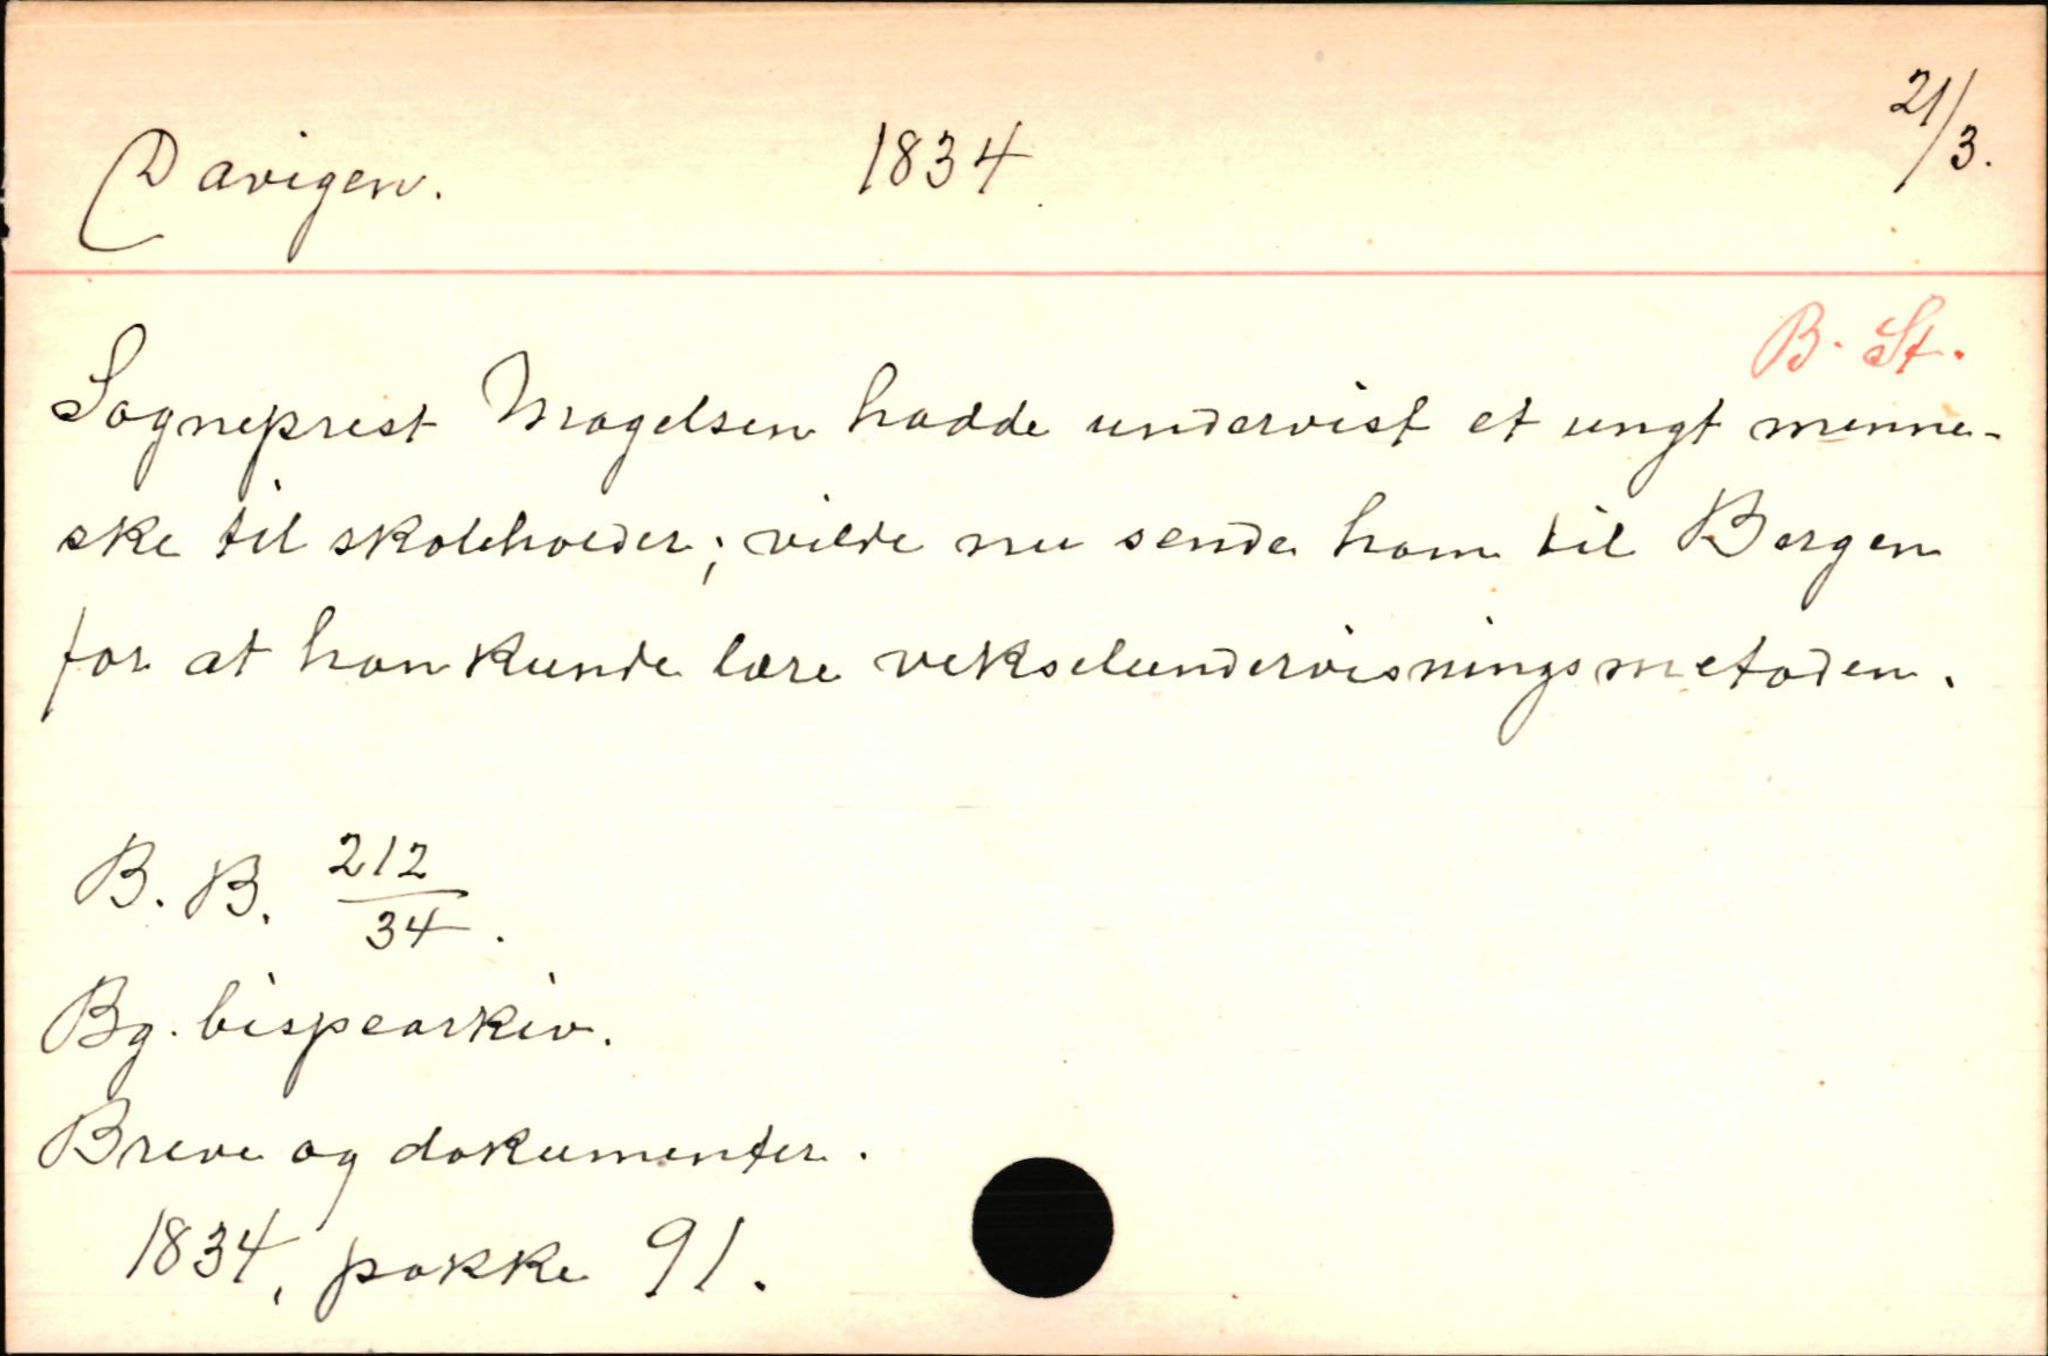 Davigen. 1834 21/3.
B. St.
Sogneprest Magelsen hadde undervist et ungt menne-
ske til skoleholder; vilde nu sende ham til Bergen
for at han kunde lære vekselundervisningsmetoden.
B. B. 212/34.
Bg. bispearkiv.
Breve og dokumenter.
1834, pakke 91.